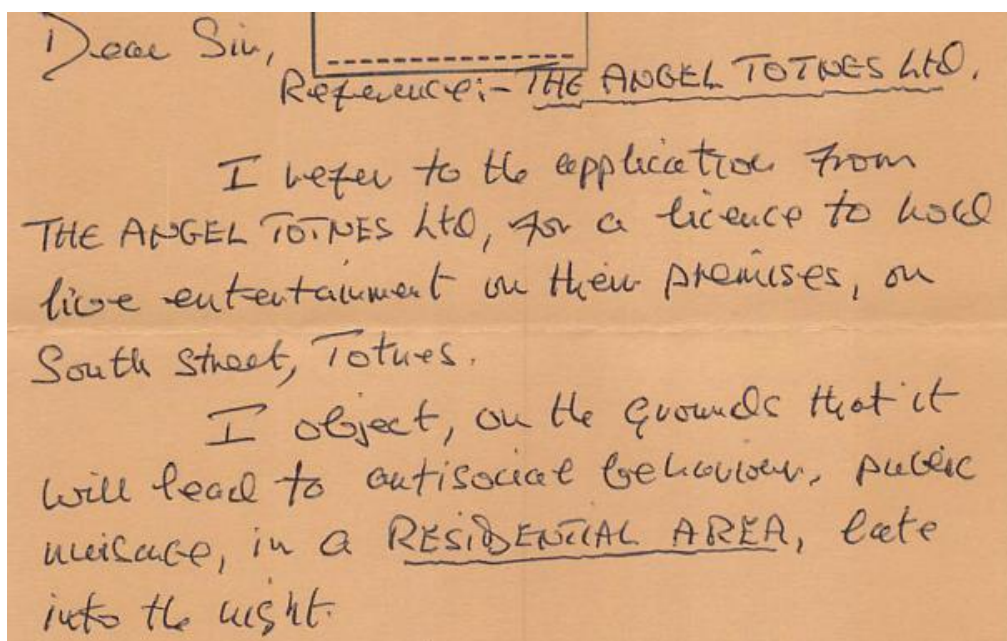 Dear Sir,
Reference:- THE ANGEL TOTNES Ltd.
I refer to the application from
THE ANGEL TOTNES Ltd, for a licence to hold
live entertainment on their premises, on
South Street, Totnes.
I object, on the grounds that it
will lead to antisocial behaviour, public
nuisance, in a RESIDENTIAL AREA, late
into the night.